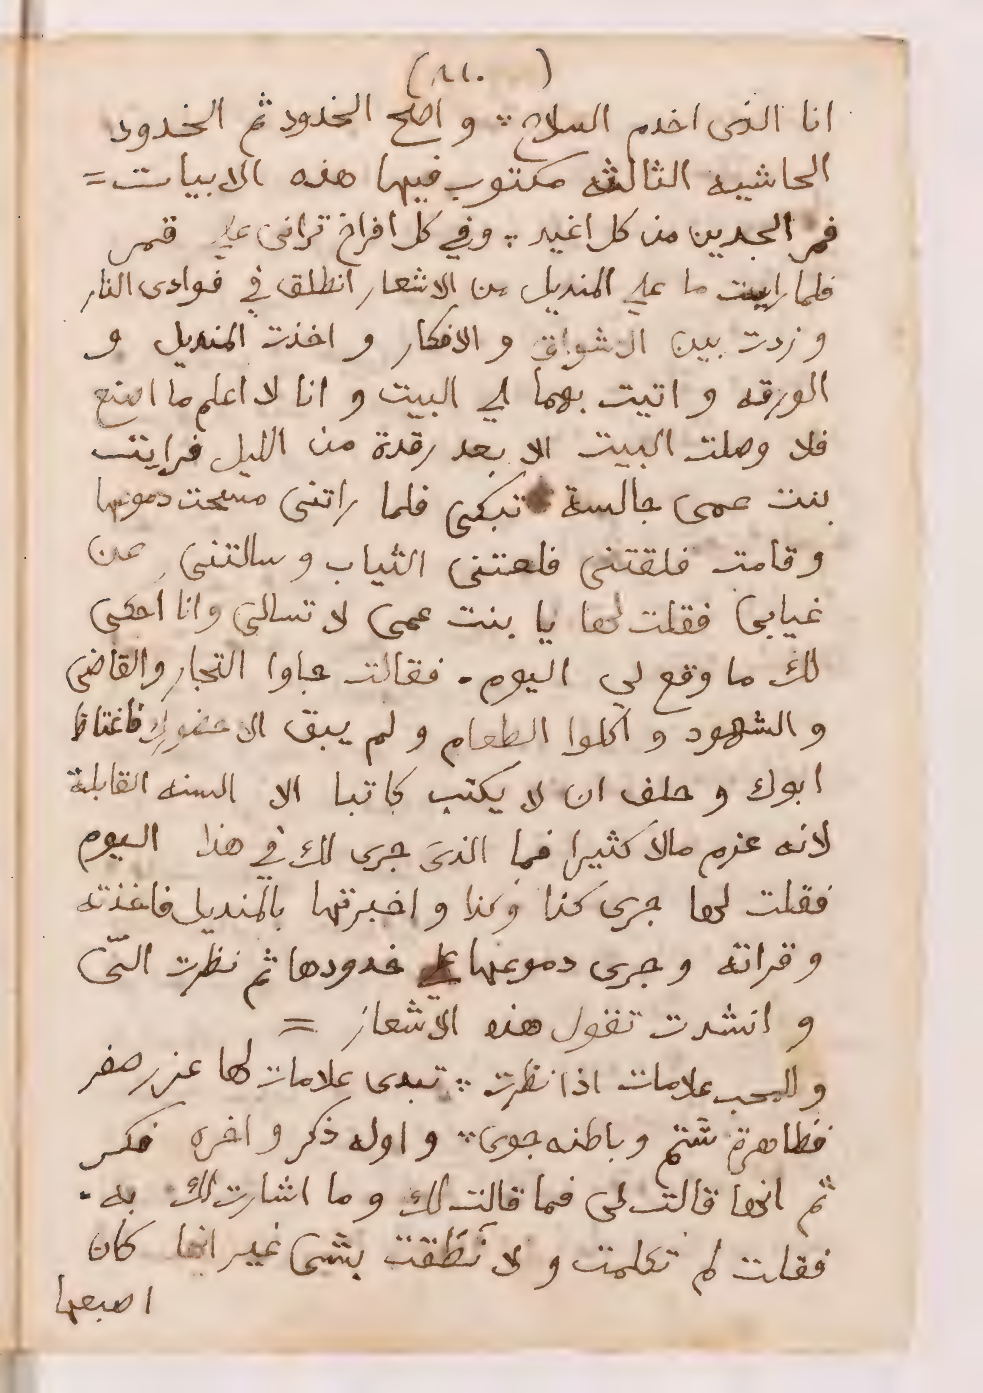 (١١٠)
انا الذى اخدم السلاح ⁖ و اصلح الخدود ثم الخدود
الحاشيه الثالثه مكتوب فيها هذه الابيات =
قمر الجدين من كل اغيد ⁖ وفي كل افراح ترانى علي قمر
فلما رايت ما علي المنديل من الاشعار انطلق في فوادى النار
و زدت بين الاشواق و الافكار و اخذت المنديل و
الورقه و اتيت بهما الي البيت و انا لا اعلم ما اصنع
فلا وصلت البيت الا بعد رقدة من الليل فرايت
بنت عمى جالسة تبكى فلما راتنى مسحت دموعها
و قامت فلقتنى فلعتنى الثياب و سالتنى عن
غيابى فقلت لها يا بنت عمى لا تسالى وانا احكى
لك ما وقع لي اليوم . فقالت جاوا التجار والقاضى
و الشهود و اكلوا الطعام و لم يبق الا حضورك فاغتاظ
ابوك و حلف ان لا يكتب كاتبا الا السنه القابلة
لانه عزم مالا كثيرا فما الذى جرى لك في هذا اليوم
فقلت لها جرى كذا وكذا و اخبرتها بالمنديل فاخذته
و قراته و جرى دموعها علي خدودها ثم نظرت التى
و انشدت تقول هذه الاشعار =
و للحب علامات اذا نظرت ⁖ تبدى علامات لها عزر صفر
فظاهرة شتم و باطنه جوى ⁖ و اوله ذكر و اخره فكر
ثم انها قالت لى فما قالت لك و ما اشارت لك به .
فقلت لم تكلمت و لا نَطَقت بشى غير انها كان
اصبعها